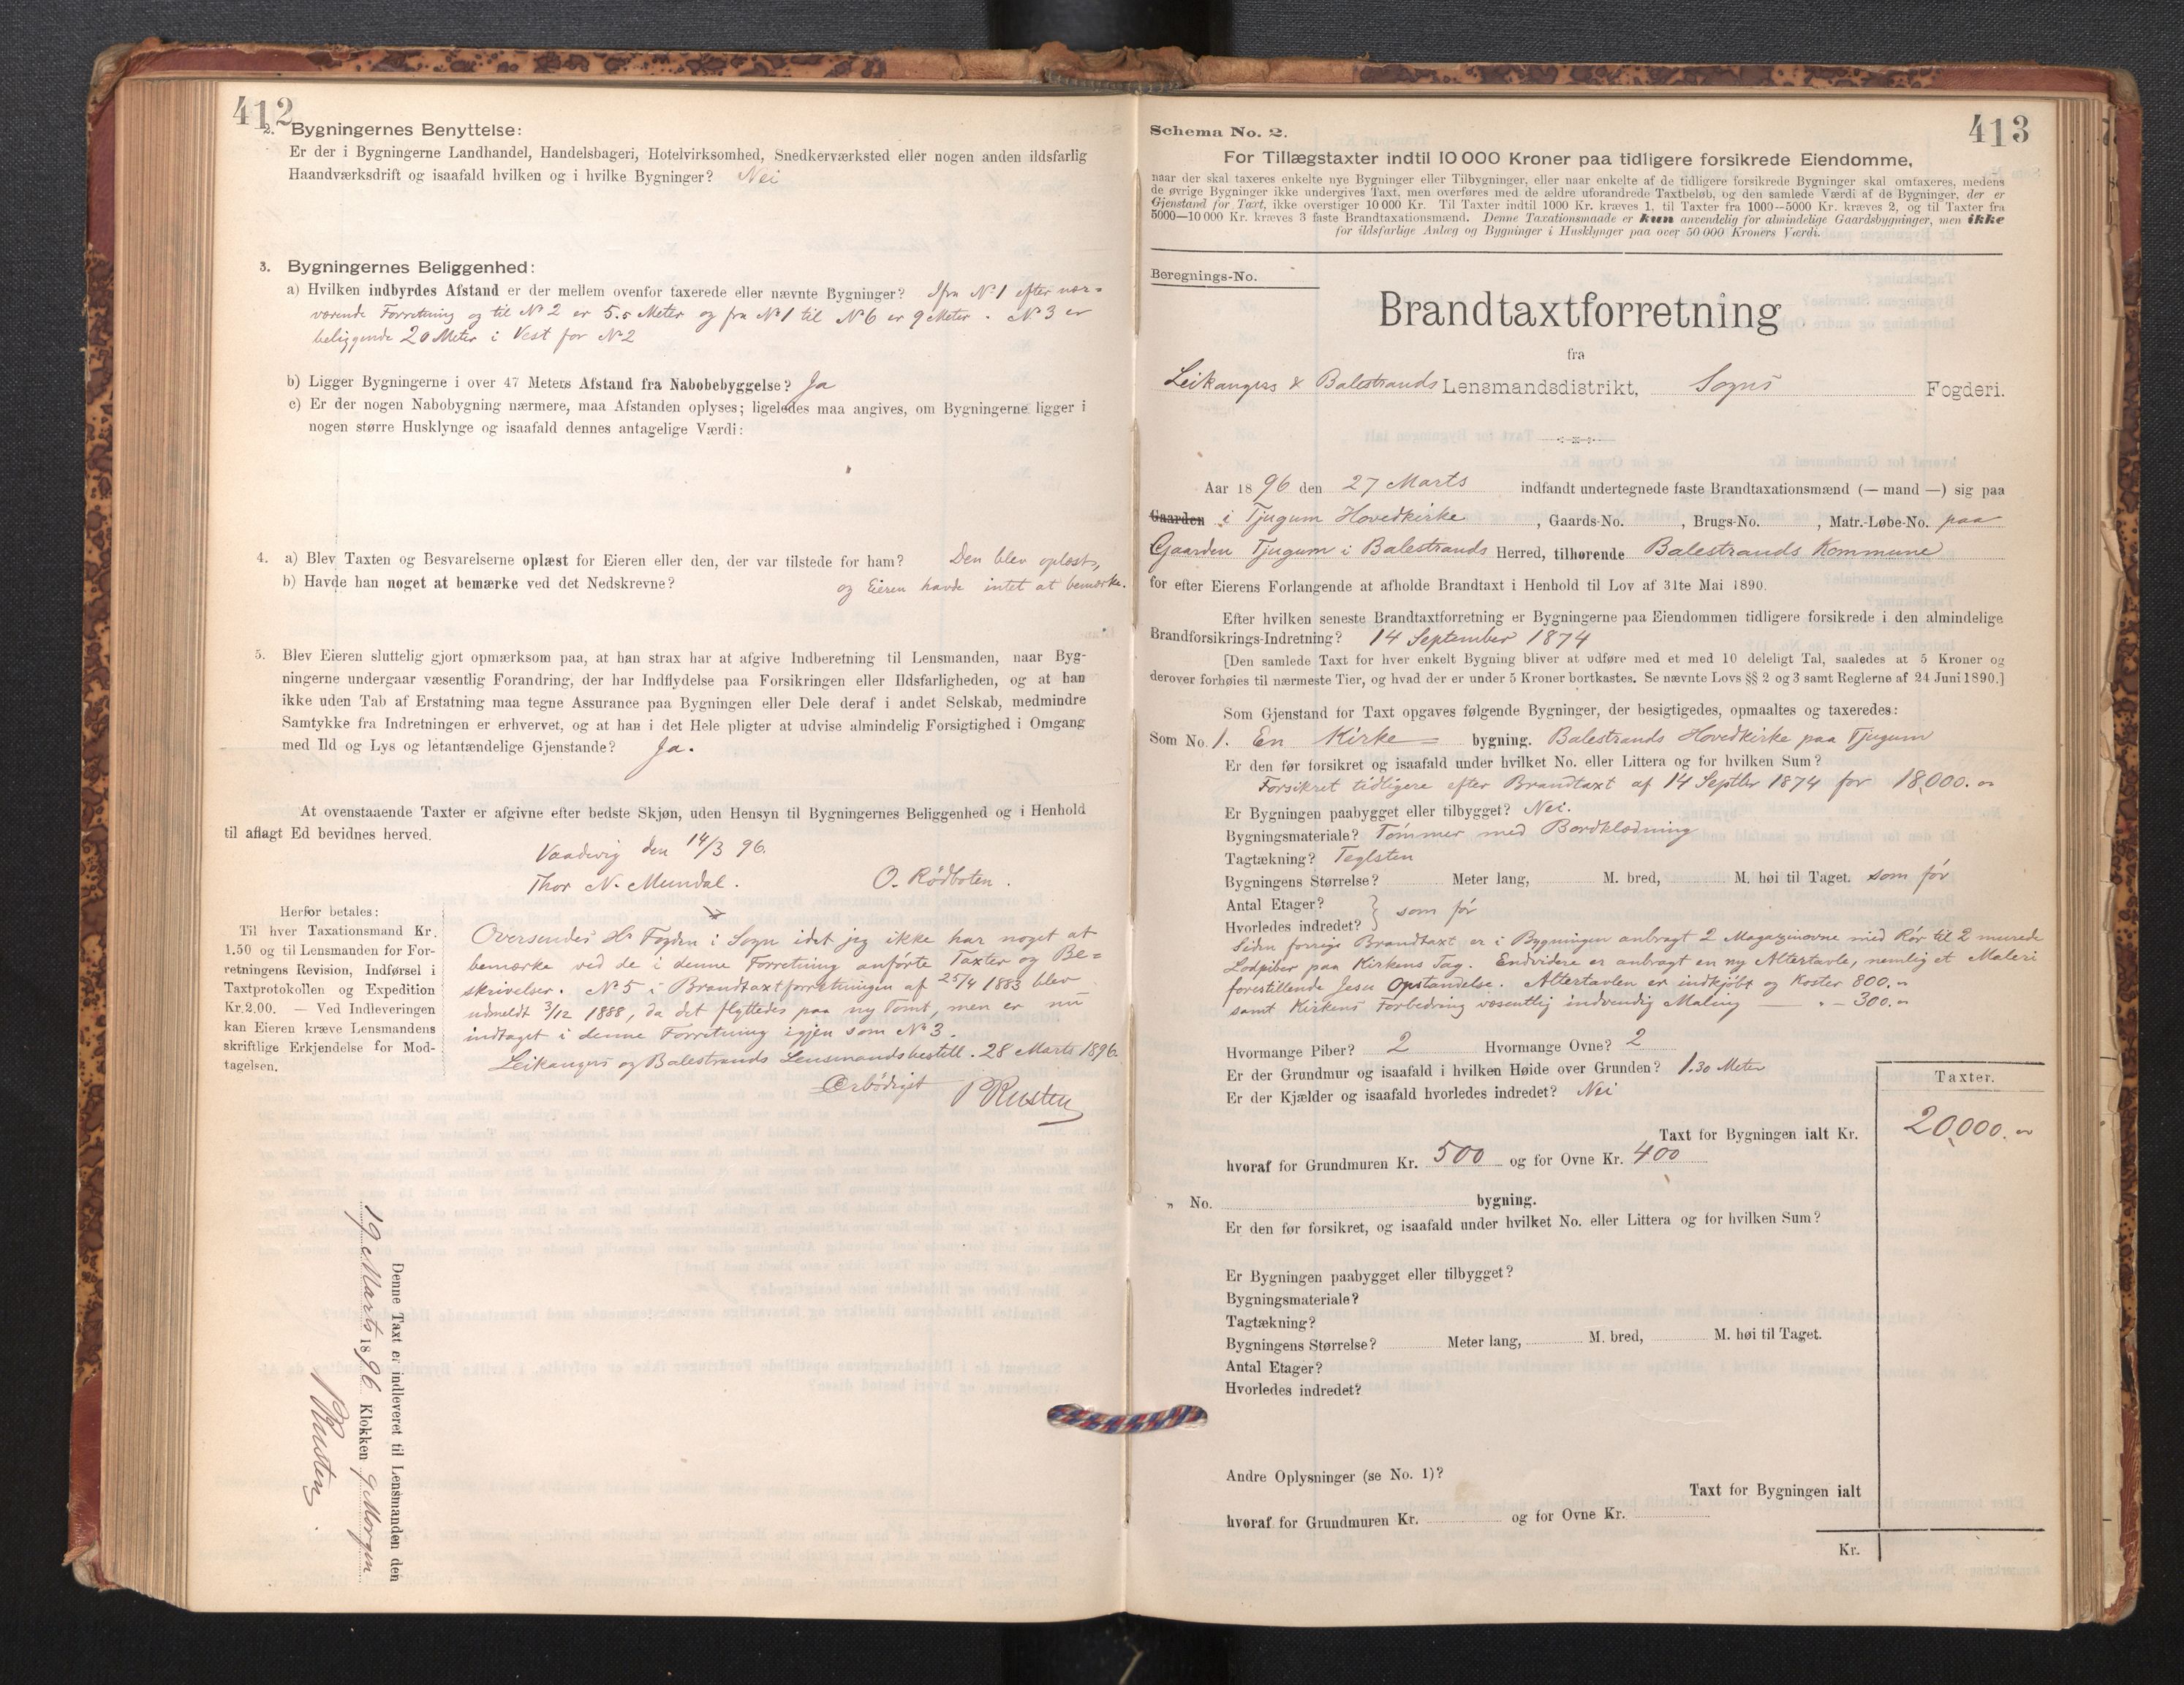 412
2. Bygningernes Benyttelse:
Er der i Bygningerne Landhandel, Handelsbageri, Hotelvirksomhed, Snedkerværksted eller nogen anden ildsfarlig
Haandværksdrift og isaafald hvilken og i hvilke Bygninger? Nei
3. Bygningernes Beliggenhed:
a) Hvilken indbyrdes Afstand er der mellem ovenfor taxerede eller nævnte Bygninger? Ifra No 1 efter nær=
værende Forretning og til No 2 er 5.5 Meter og fra No 1 til No 6 er 9 Meter. No 3 er
beliggende 20 Meter i Vest for No 2
b) Ligger Bygningerne i over 47 Meters Afstand fra Nabobebyggelse? Ja
c) Er der nogen Nabobygning nærmere, maa Afstanden oplyses; ligeledes maa angives, om Bygningerne ligger i
nogen større Husklynge og isaafald dennes antagelige Værdi:
4. a) Blev Taxten og Besvarelserne oplæst for Eieren eller den, der var tilstede for ham? Den blev oplæst,
b) Havde han noget at bemærke ved det Nedskrevne? og Eieren havde intet at bemærke.
5. Blev Eieren sluttelig gjort opmærksom paa, at han strax har at afgive Indberetning til Lensmanden, naar Byg-
ningerne undergaar væsentlig Forandring, der har Indflydelse paa Forsikringen eller Ildsfarligheden, og at han
ikke uden Tab af Erstatning maa tegne Assurance paa Bygningen eller Dele deraf i andet Selskab, medmindre
Samtykke fra Indretningen er erhvervet, og at han i det Hele pligter at udvise almindelig Forsigtighed i Omgang
med Ild og Lys og letantændelige Gjenstande? Ja.
At ovenstaaende Taxter er afgivne efter bedste Skjøn, uden Hensyn til Bygningernes Beliggenhed og i Henhold
til aflagt Ed bevidnes herved.
den 14/3 96.
Thor N. Mundal. O. Rødboten.
Herfor betales:
Til hver Taxationsmand Kr.
1.50 og til Lensmanden for For-
retningens Revision, Indførsel i
Taxtprotokollen og Expedition
Kr. 2.00. — Ved Indleveringen
kan Eieren kræve Lensmandens
skriftlige Erkjendelse for Mod-
tagelsen.
Oversendes Hr Fogden i Sogn idet jeg ikke har noget at
bemærke ved de i denne Forretning anførte Taxter og Be=
skrivelser. No 5 i Brandtaxtforretningen af 25/4 1883 blev
udmeldt 3/12 1888, da det flyttedes paa ny Tomt, men er nu
indtaget i denne Forretning igjen som No 3.
Leikangers og Balestrands Lensmandsbestill. 28 Marts 1896.
Ærbødigst Rusten
Denne Taxt er indleveret til Lensmanden den
19 Marts 1896 Klokken 9 Morgen
Rusten
413
Schema No. 2.
For Tillægstaxter indtil 10 000 Kroner paa tidligere forsikrede Eiendomme,
naar der skal taxeres enkelte nye Bygninger eller Tilbygninger, eller naar enkelte af de tidligere forsikrede Bygninger skal omtaxeres, medens
de øvrige Bygninger ikke undergives Taxt, men overføres med de ældre uforandrede Taxtbeløb, og den samlede Værdi af de Bygninger, der er
Gjenstand for Taxt, ikke overstiger 10 000 Kr. Til Taxter indtil 1000 Kr. kræves 1, til Taxter fra 1000—5000 Kr. kræves 2, og til Taxter fra
5000—10 000 Kr. kræves 3 faste Brandtaxationsmænd. Denne Taxationsmaade er kun anvendelig for almindelige Gaardsbygninger, men ikke
for ildsfarlige Anlæg og Bygninger i Husklynger paa over 50 000 Kroners Værdi.
Beregnings-No.
Brandtaxtforretning
fra
Leikangers & Balestrands Lensmandsdistrikt, Sogns Fogderi.
Aar 1896 den 27 Marts indfandt undertegnede faste Brandtaxationsmænd (— mand —) sig paa
Gaarden i Tjugum Hovedkirke, Gaards-No. , Brugs-No. , Matr.-Løbe-No. paa
Gaarden Tjugum i Balestrands Herred, tilhørende Balestrands Kommune
for efter Eierens Forlangende at afholde Brandtaxt i Henhold til Lov af 31te Mai 1890.
Efter hvilken seneste Brandtaxtforretning er Bygningerne paa Eiendommen tidligere forsikrede i den almindelige
Brandforsikrings-Indretning? 14 September 1874
[Den samlede Taxt for hver enkelt Bygning bliver at udføre med et med 10 deleligt Tal, saaledes at 5 Kroner og
derover forhøies til nærmeste Tier, og hvad der er under 5 Kroner bortkastes. Se nævnte Lovs §§ 2 og 3 samt Reglerne af 24 Juni 1890.]
Som Gjenstand for Taxt opgaves følgende Bygninger, der besigtigedes, opmaaltes og taxeredes:
Som No. 1. En Kirke= bygning. Balestrands Hovedkirke paa Tjugum
Er den før forsikret og isaafald under hvilket No. eller Littera og for hvilken Sum?
Forsikret tidligere efter Brandtaxt af 14 Septbr 1874 for 18,000. "
Er Bygningen paabygget eller tilbygget? Nei.
Bygningsmateriale? Tømmer med Bordklædning
Tagtækning? Teglsten
Bygningens Størrelse? Meter lang, M. bred, M. høi til Taget. som før
Antal Etager?
Hvorledes indredet? } som før
Siden forrige Brandtaxt er i Bygningen anbragt 2 Magazinovne med Rør til 2 murede
Lodpiber paa Kirkens Tag. Endvidere er anbragt en ny Altertavle, nemlig et Maleri
forestillende Jesu Opstandelse. Altertavlen er indkjøbt og koster 800. "
samt Kirkens Forbedring væsentlig indvendig Maling — " – 300. "
Hvormange Piber? 2 Hvormange Ovne? 2
Er der Grundmur og isaafald i hvilken Høide over Grunden? 1.30 Meter
Er der Kjælder og isaafald hvorledes indredet? Nei
Taxter.
Taxt for Bygningen ialt Kr. 20,000. "
hvoraf for Grundmuren Kr. 500 og for Ovne Kr. 400
" No. bygning.
Er den før forsikret, og isaafald under hvilket No. eller Littera og for hvilken Sum?
Er Bygningen paabygget eller tilbygget?
Bygningsmateriale?
Tagtækning?
Bygningens Størrelse? Meter lang, M. bred, M. høi til Taget.
Antal Etager?
Hvorledes indredet?
Andre Oplysninger (se No. 1)?
Taxt for Bygningen ialt
hvoraf for Grundmuren Kr. og for Ovne Kr.
Kr.